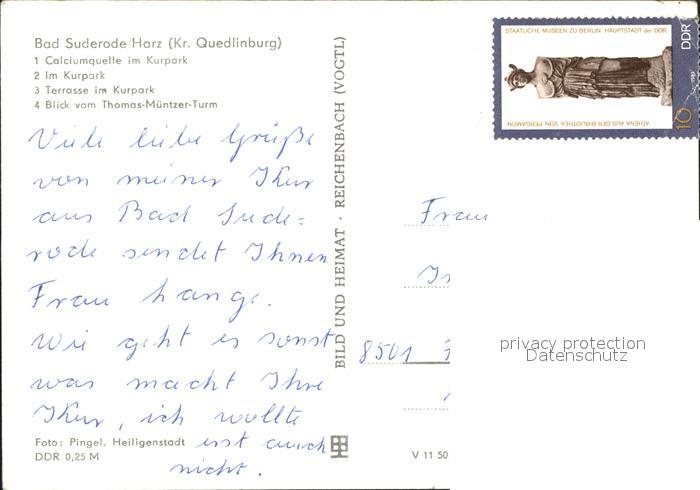 Bad Suderode/Harz (Kr. Quedlinburg)
1 Calciumquelle im Kurpark
2 Im Kurpark
3 Terrasse im Kurpark
4 Blick vom Thomas-Müntzer-Turm
Viele liebe Grüße
von meiner Kur
aus Bad Sude=
rode sendet Ihnen
Frau Lange.
Wie geht es sonst
was macht Ihre
Kur, ich wollte
erst auch
nicht.
Foto: Pingel, Heiligenstadt
DDR 0,25 M
BILD UND HEIMAT · REICHENBACH (VOGTL)
V 11 50
STAATLICHE MUSEEN ZU BERLIN HAUPTSTADT der DDR
ATHENA AUS DER BIBLIOTHEK VON PERGAMON
DDR
10
Frau
8501
privacy protection
Datenschutz